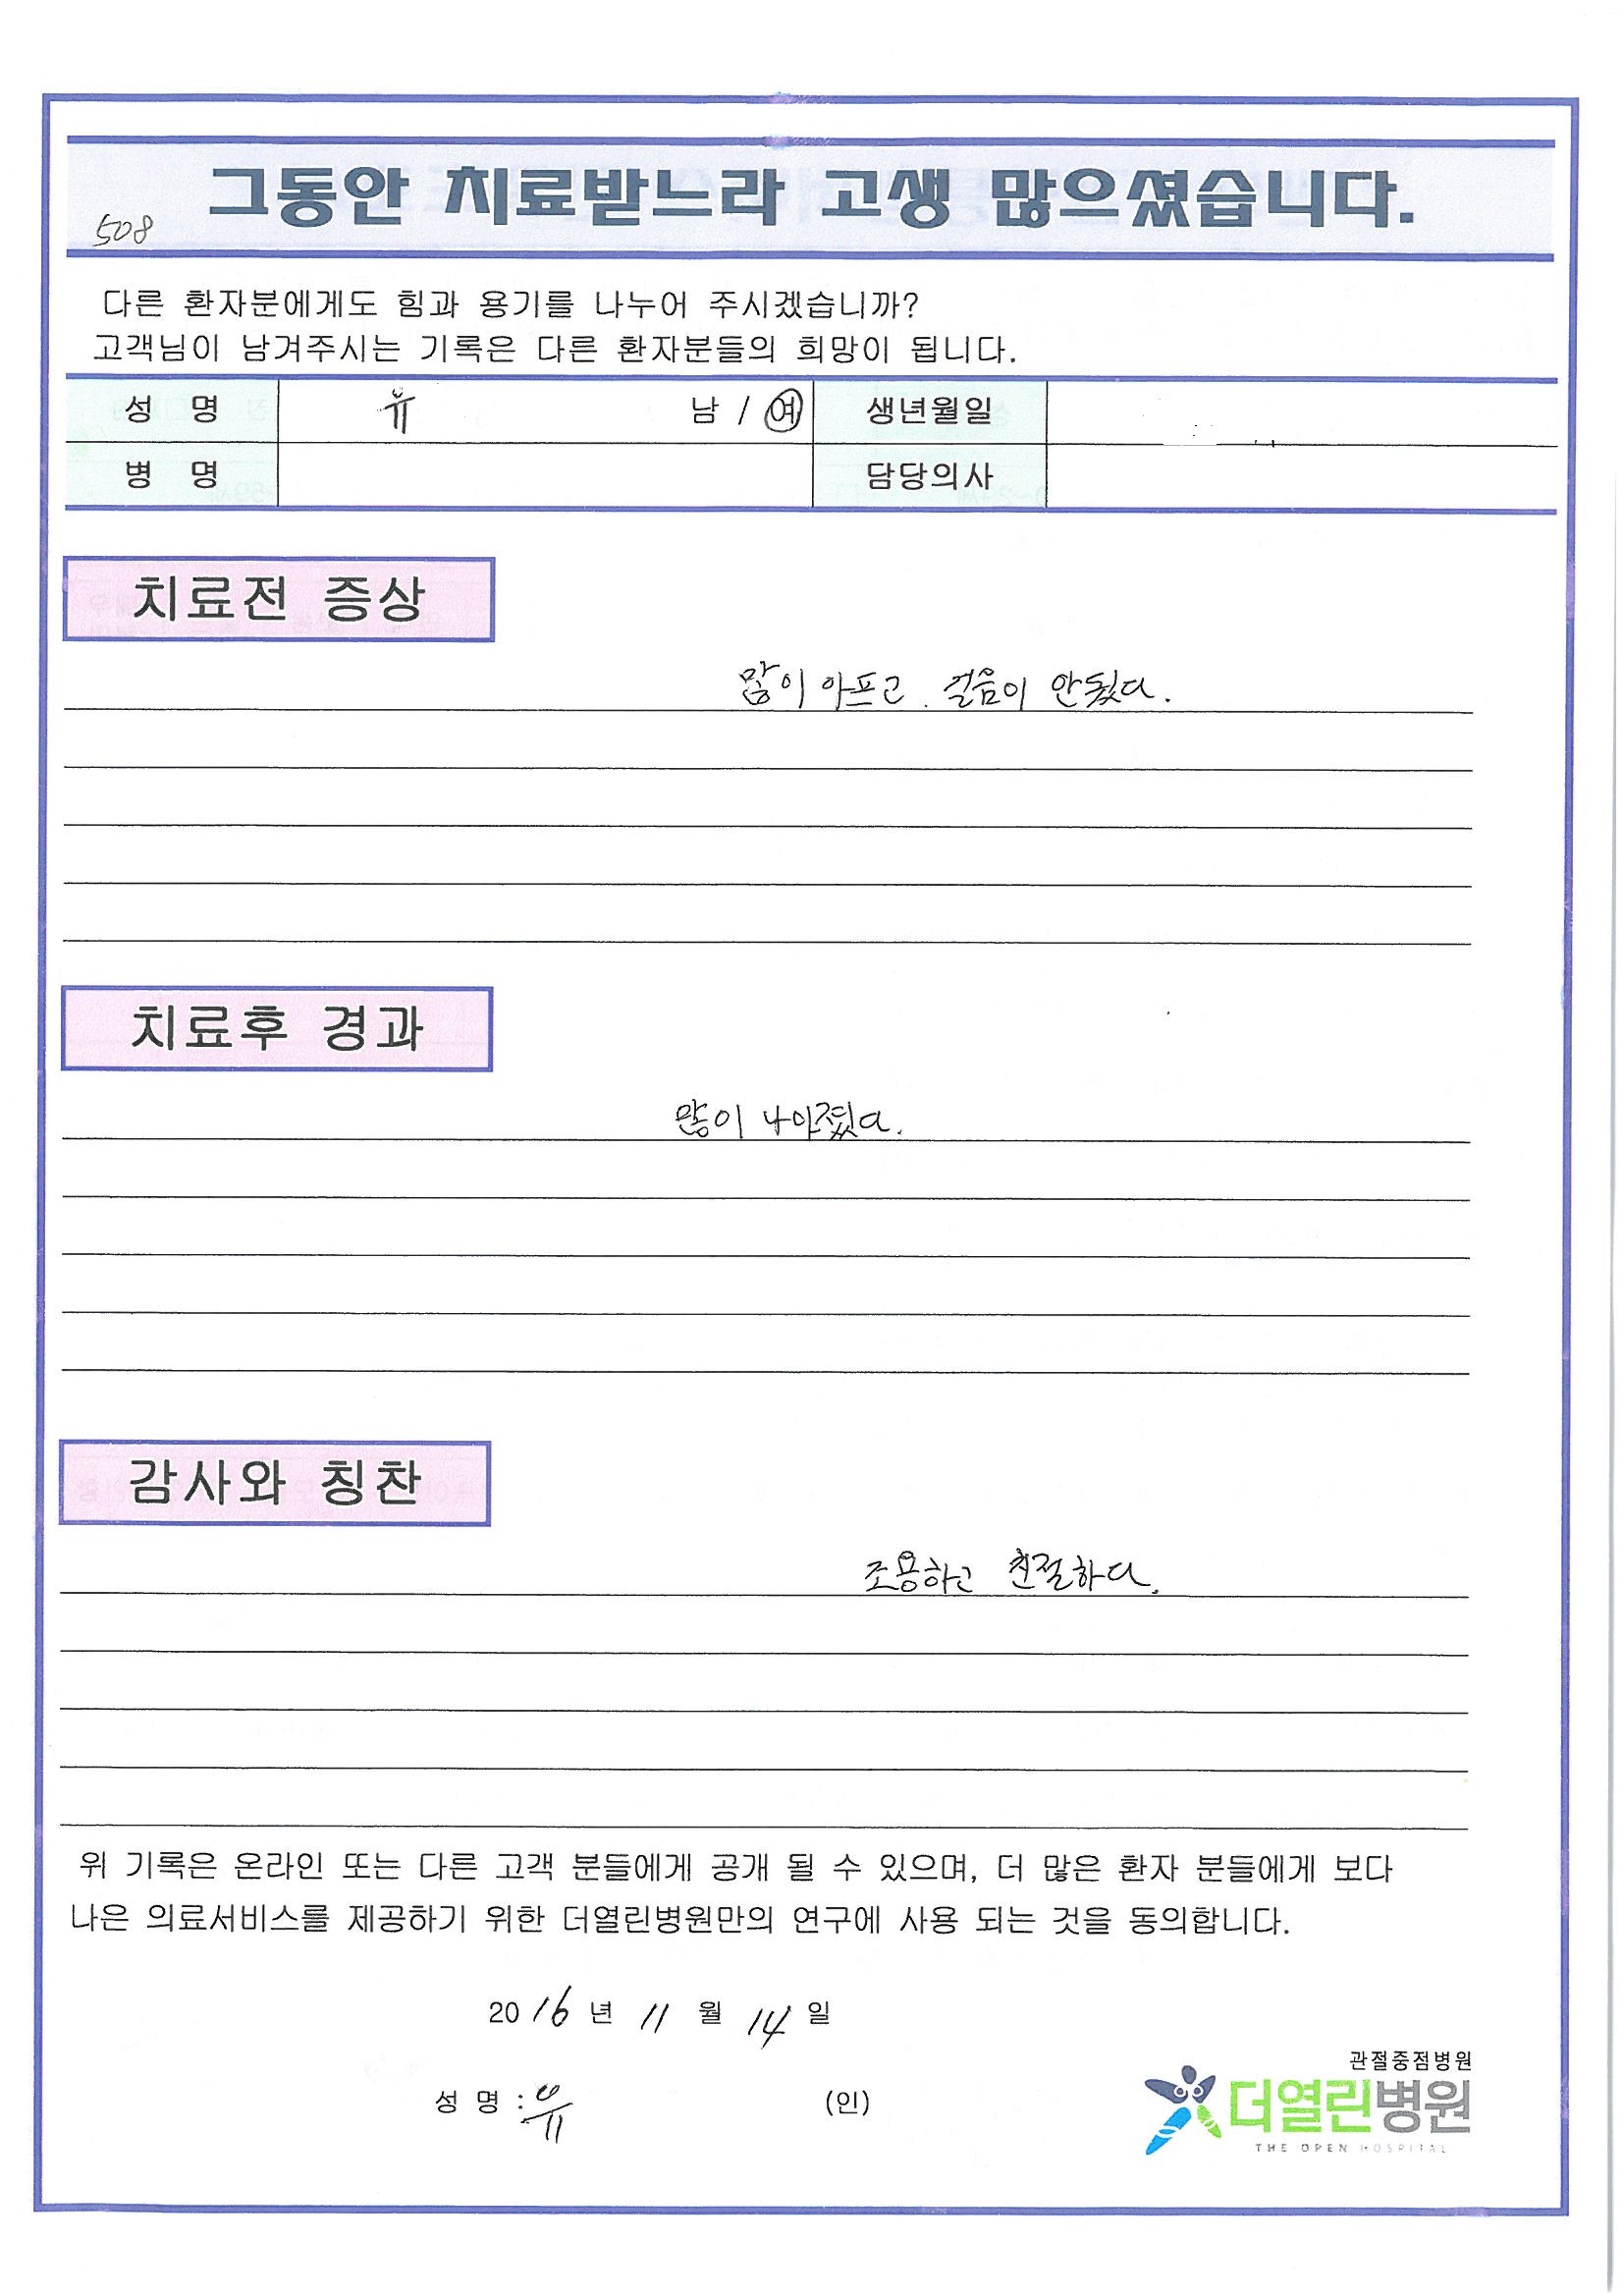 그동안 치료받느라 고생 많으셨습니다.
508
다른 환자분에게도 힘과 용기를 나누어 주시겠습니까?
고객님이 남겨주시는 기록은 다른 환자분들의 희망이 됩니다.
성 명 유 남 / 여 생년월일
병 명 담당의사
치료전 증상
많이 아프고. 걸음이 안됬다.
치료후 경과
많이 나아졌다.
감사와 칭찬
조용하고 친절하다.
위 기록은 온라인 또는 다른 고객 분들에게 공개 될 수 있으며, 더 많은 환자 분들에게 보다
나은 의료서비스를 제공하기 위한 더열린병원만의 연구에 사용 되는 것을 동의합니다.
2016 년 11 월 14 일
성 명 : 유 (인)
관절중점병원
더열린병원
THE OPEN HOSPITAL